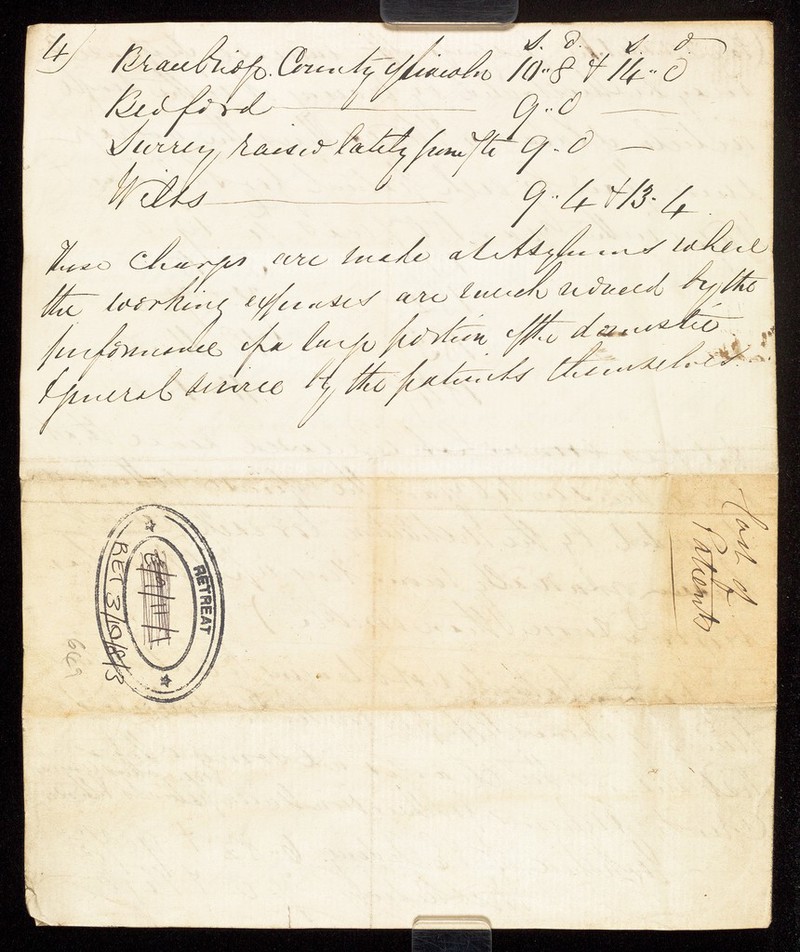 4)
s. d. s. d.
Bracebridge. County of Lincoln 10..8 & 14..0
Bedford 9..0 —
Surrey, raised lately from 9..0 —
Wilts 9..4 & 13..4
These charges are made at Asylums where
the working expenses are much reduced by the
performance of a large portion of the domestic
& general service by the patients themselves.
Cost of
Patients
RETREAT
RET 3/10/8/3
649